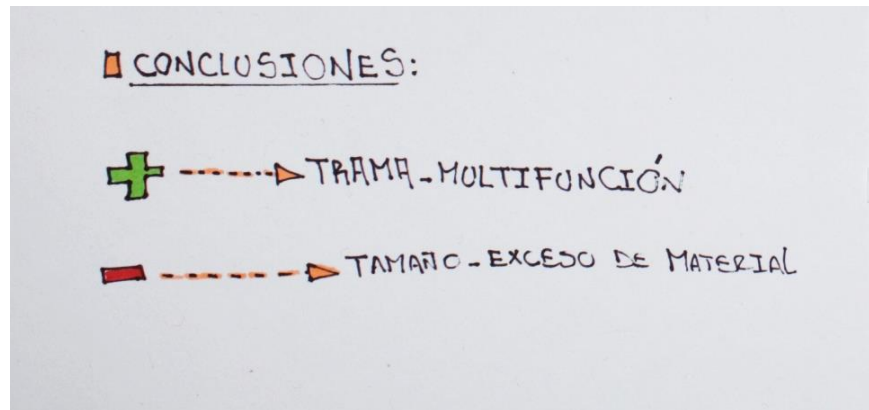 CONCLUSIONES:
TRAMA-MULTIFUNCIÓN
TAMAÑO-EXCESO DE MATERIAL